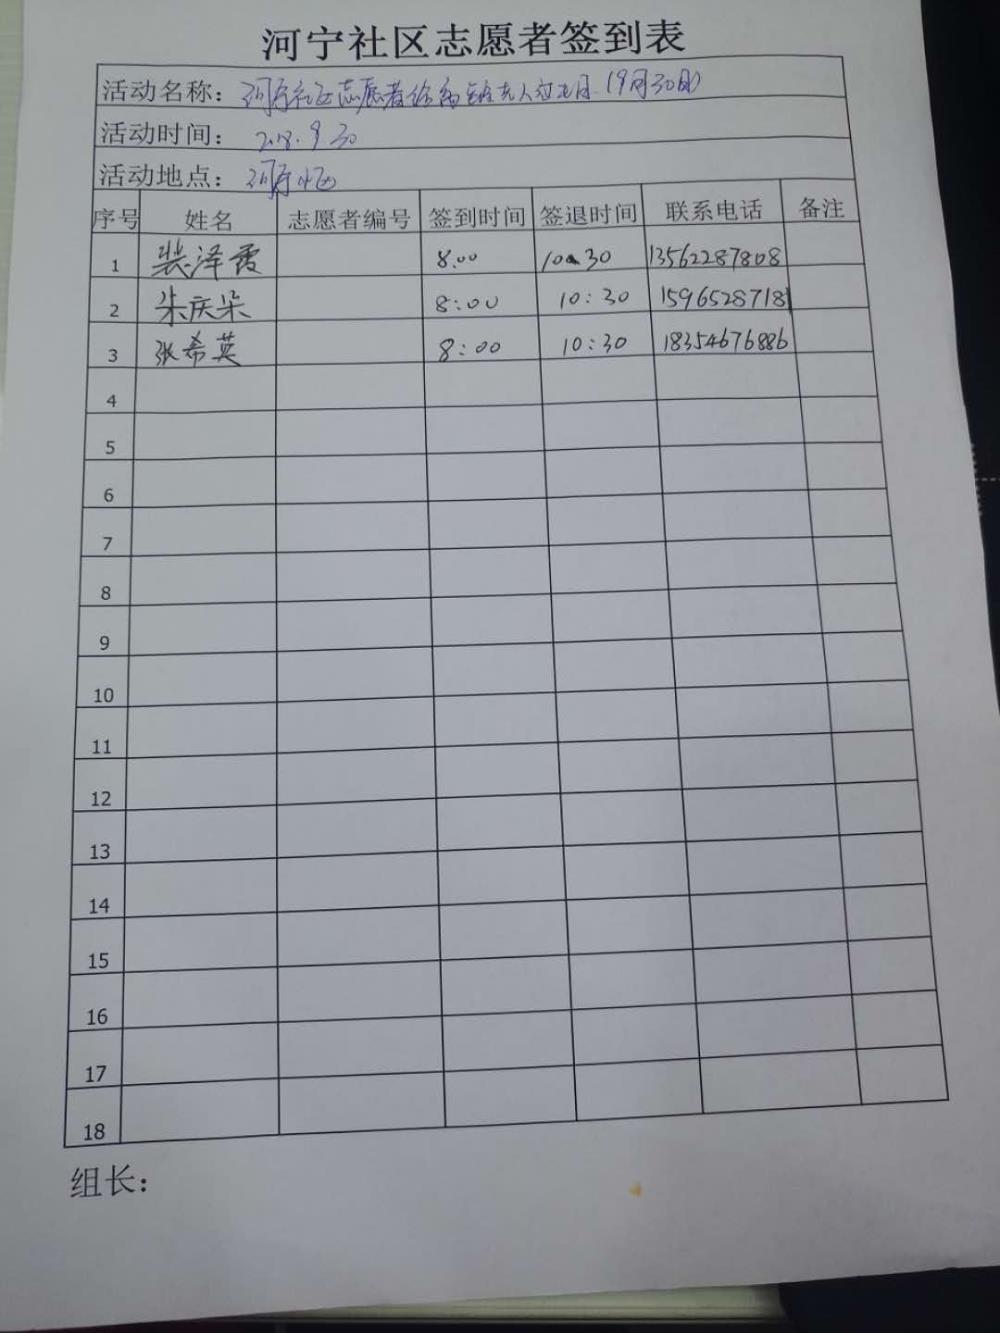 河宁社区志愿者签到表
活动名称：河宁社区志愿者给 老人过生日（9月30日）
活动时间：2018.9.30
活动地点：河宁小区
序号 姓名 志愿者编号 签到时间 签退时间 联系电话 备注
1 裴泽霞 8:00 10:30 13562287808
2 朱庆朵 8:00 10:30 15965287181
3 张希英 8:00 10:30 18354676886
4
5
6
7
8
9
10
11
12
13
14
15
16
17
18
组长：